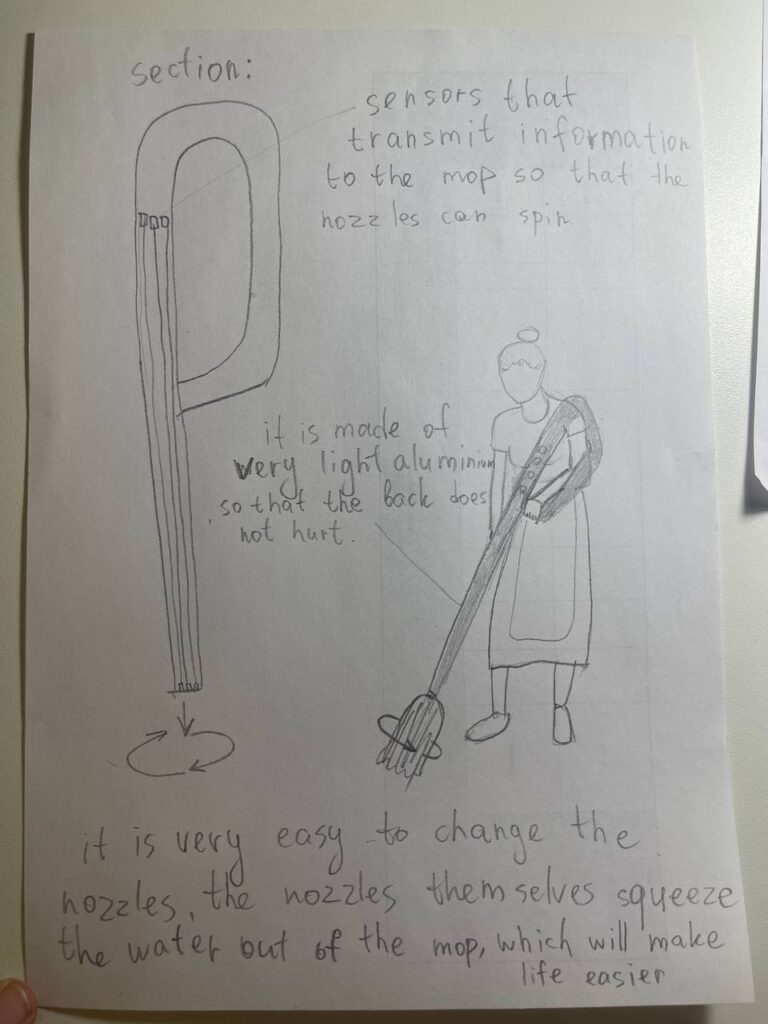 section:
sensors that
transmit information
to the mop so that the
nozzles can spin.
it is made of
very light aluminium
so that the back does
not hurt.
it is very easy to change the
nozzles, the nozzles themselves squeeze
the water out of the mop, which will make
life easier